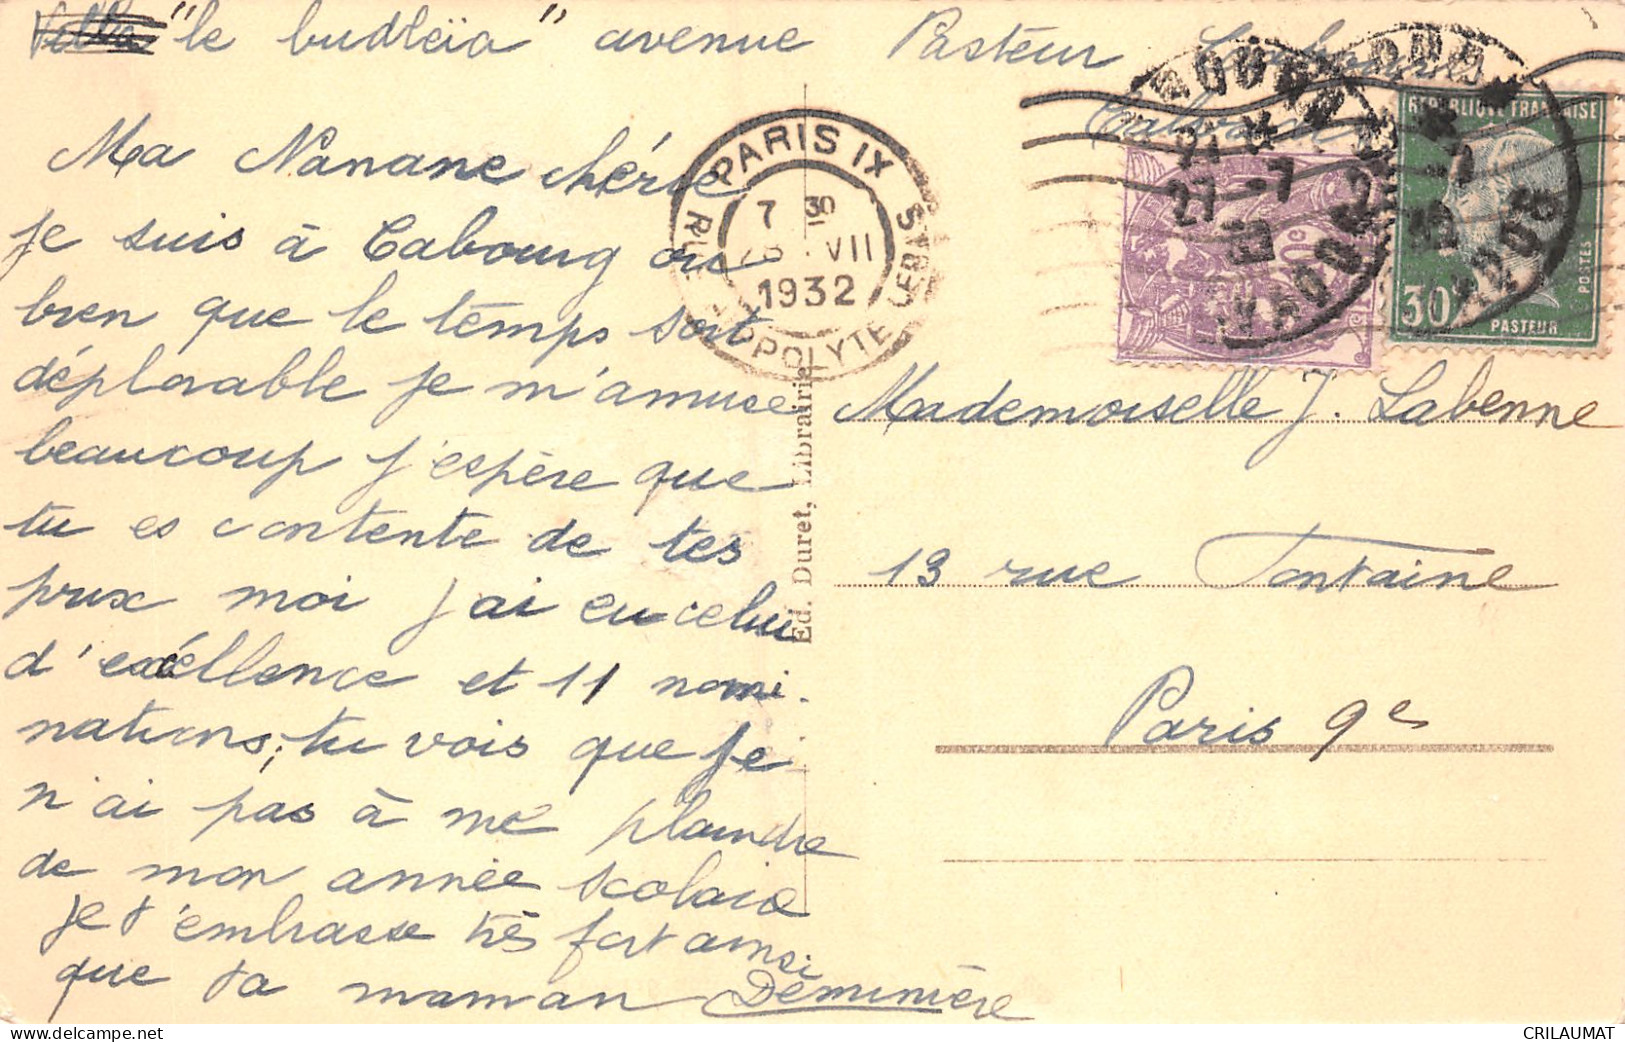 "le budleïa" avenue Pasteur Cabourg
Calvados
Ma Nanane chérie
je suis à Cabourg ou
bien que le temps soit
déplorable je m'amuse
beaucoup j'espère que
tu es contente de tes
prix moi j'ai eu celui
d'excellence et 11 nomi-
nations; tu vois que je
n'ai pas à me plaindre
de mon année scolaire
je t'embrasse très fort ainsi
que ta maman Déminière
PARIS IX
7 30
VII
1932
RUE HIPPOLYTE LEBAS
Ed. Duret, Librairie
27 -7
REPUBLIQUE FRANCAISE
POSTES
30c
PASTEUR
Mademoiselle J. Labenne
13 rue Fontaine
Paris 9e
CRILAUMAT